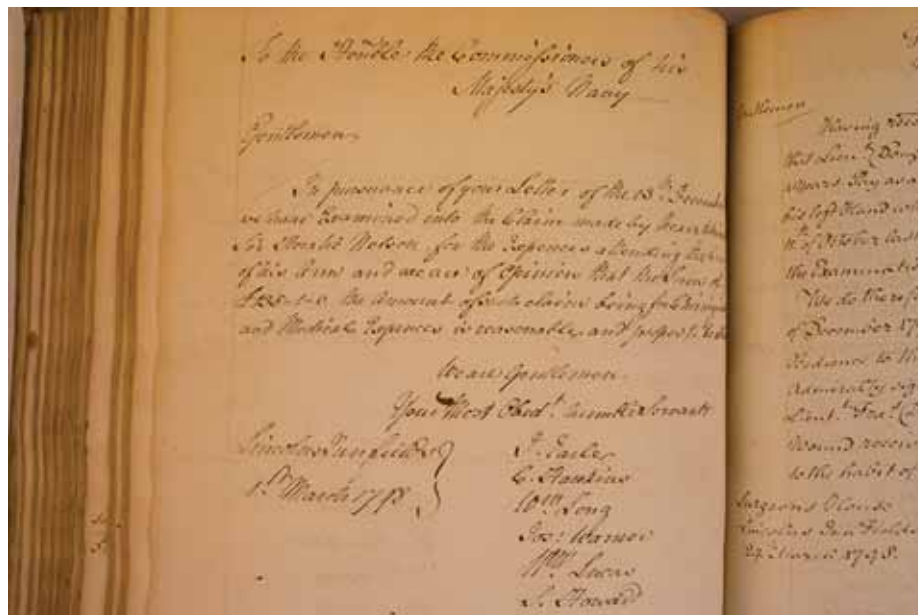 To the Honble: the Commissioners of his
Majesty's Navy
Gentlemen,
In pursuance of your Letter of the 13th
we have Examined into the Claim made by Rear
Sir Horatio Nelson, for the Expences attending the
of his Arm and we are of Opinion that the Sum of
£135-1-0, the Amount of such claim being for Chirurgical
and Medical Expences is reasonable, and proper to be
We are Gentlemen
Your Most Obedt. humble Servants
Lincolns Inn fields
1st March 1798
J. Earle
C. Hawkins
Wm. Long
Jos: Warner
Wm. Lucas
J. Howard
Gentlemen
Having
that Lieut.
a years Pay as a
his left Hand
11th of October last
the Examination
We do therefore
of December 17
Obedience to the
Admiralty
Lieut.
Wound
to the habit of
Surgeons
Lincolns Inn Fields
1798.